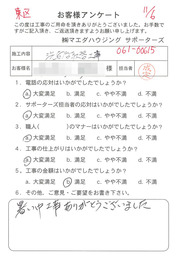 東区
お客様アンケート
11/6
この度は工事のご用命を頂きありがとうございました。お手数で
すがご記入頂き、ご返送頂きますようお願い申し上げます。
㈱マエダハウジング サポーターズ
施工内容
061-00615
担当者
1. 電話の応対はいかがでしたでしょうか?
a. 大変満足 b. 満足 c. やや不満 d. 不満
2. サポーターズ担当者の応対はいかがでしたでしょうか?
a. 大変満足 b. 満足 c. やや不満 d. 不満
3. 職人( )のマナーはいかがでしたでしょうか?
a. 大変満足 b. 満足 c. やや不満 d. 不満
4. 工事の仕上がりはいかがでしたでしょうか?
a. 大変満足 b. 満足 c. やや不満 d. 不満
5. 工事の金額はいかがでしたでしょうか?
a. 大変満足 b. 満足 c. やや不満 d. 不満
6. その他、ご意見・ご要望をお書き下さい。
暑い中工事ありがとうございました